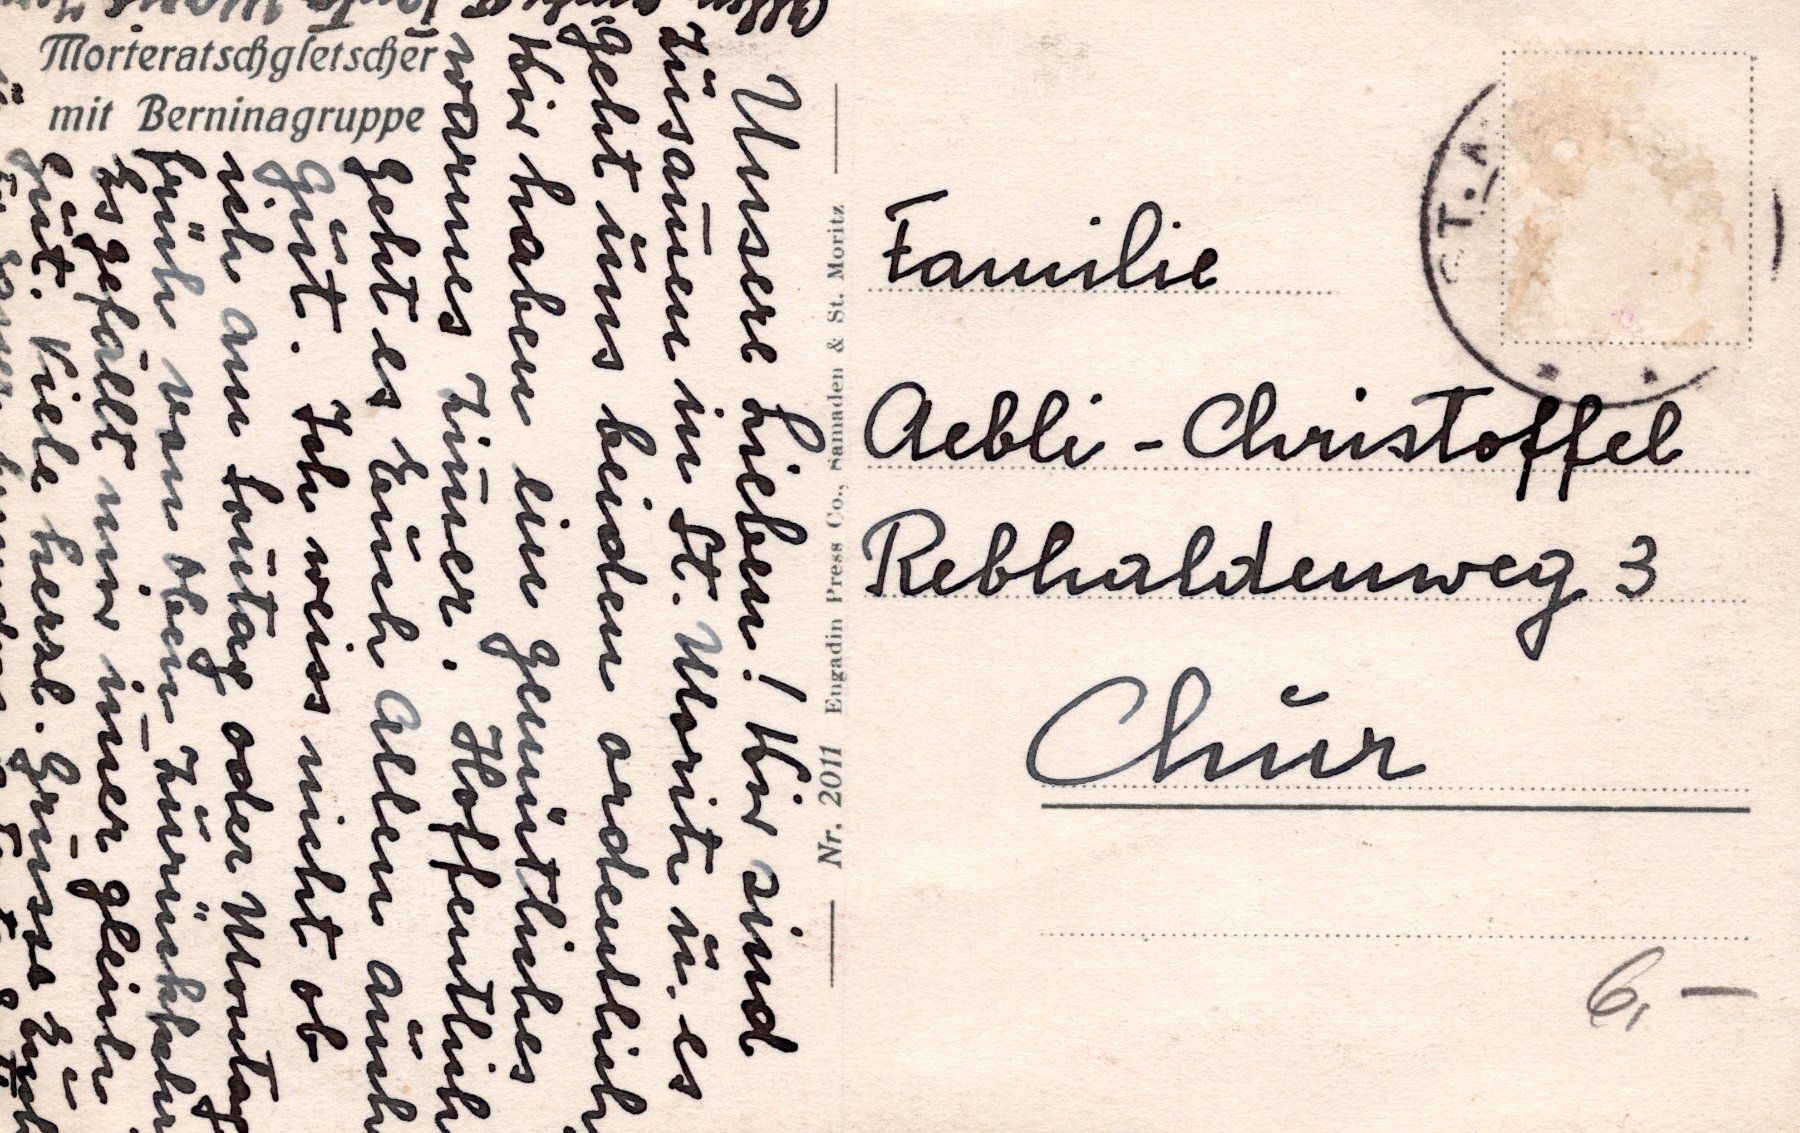 Morteratschgletscher
mit Berninagruppe
Unsere Lieben! Wir sind
zusam̄en in St. Moritz u. es
geht uns beiden ordentlich
Wir haben ein gemütliches
warmes Zim̄er. Hoffentlich
geht es Euch allen auch
gut. Ich weiss nicht ob
ich am Sonntag oder Montag
früh von oben zurückkehre
Es gefällt mir im̄er gleich
gut. Viele herzl. Grüsse Euch
Allen
Nr. 2011 Engadin Press Co., Samaden & St. Moritz
ST.
Familie
Aebli-Christoffel
Rebhaldenweg 3
Chur
6,-